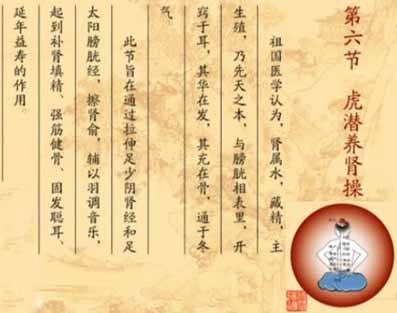 第六节 虎潜养肾操
祖国医学认为，肾属水，藏精，主
生殖，乃先天之本，与膀胱相表里，开
窍于耳，其华在发，其充在骨，通于冬
气。
此节旨在通过拉伸足少阴肾经和足
太阳膀胱经，擦肾俞，辅以羽调音乐，
起到补肾填精、强筋健骨、固发聪耳、
延年益寿的作用。